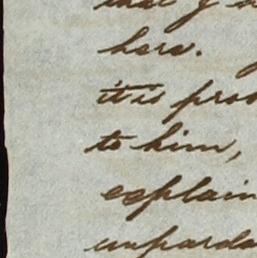 that
here.
it is pro
to him,
explain
unparda